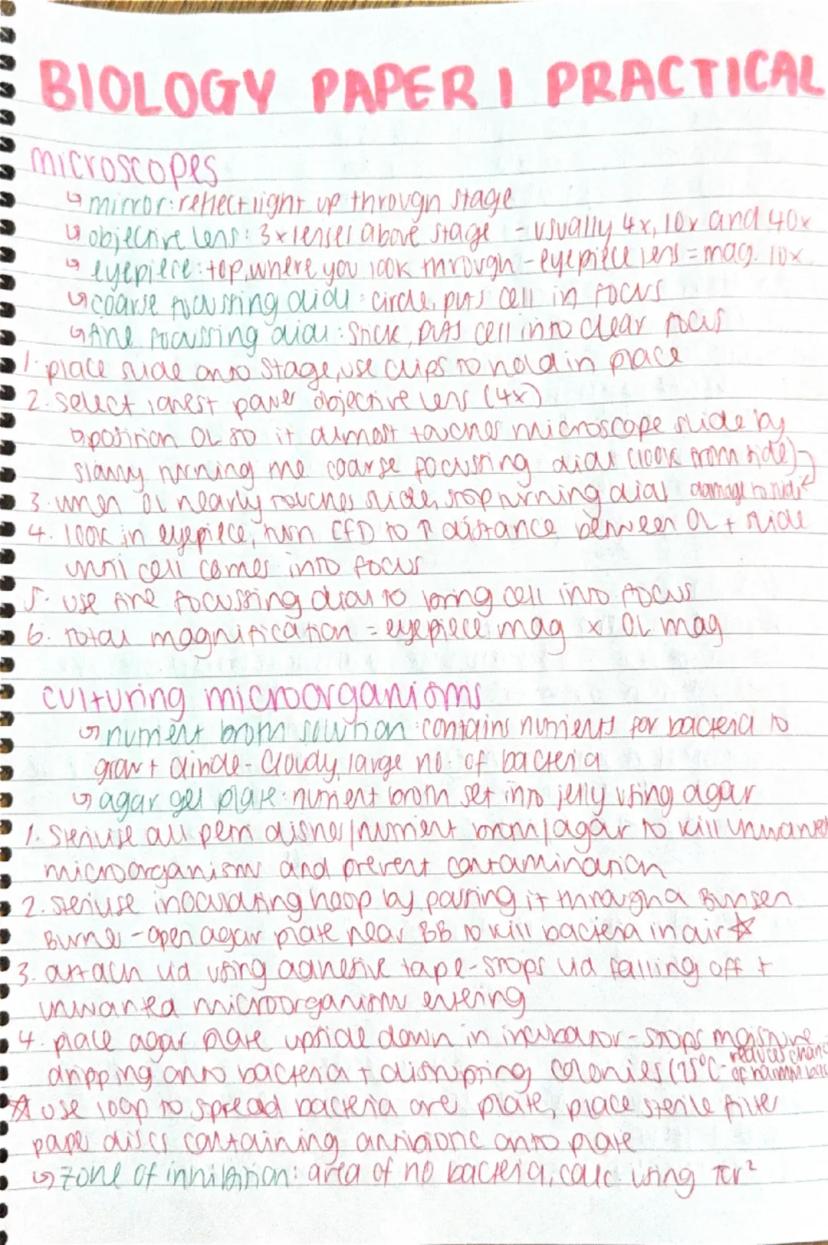 BIOLOGY PAPER 1 PRACTICAL
microscopes
↳ mirror: reflect light up through stage
↳ objective lens: 3x lenses above stage - usually 4x, 10x and 40x
↳ eyepiece: top, where you look through - eyepiece lens = mag. 10x
↳ coarse focussing dial: circle, puts cell in focus
↳ fine focussing dial: stick, puts cell into clear focus
1. place slide onto stage, use clips to hold in place
2. select lowest power objective lens (4x)
↳ position OL so it almost touches microscope slide by
slowly turning the coarse focussing dial (look from side)
3. when OL nearly touches slide, stop turning dial damage to slide
4. look in eyepiece, turn CFD to ↑ distance between OL + slide
until cell comes into focus
5. use fine focussing dial to bring cell into focus
6. total magnification = eyepiece mag x OL mag
culturing microorganisms
↳ nutrient broth solution: contains nutrients for bacteria to
grow + divide - cloudy, large no. of bacteria
↳ agar gel plate: nutrient broth set into jelly using agar
1. sterilise all petri dishes/nutrient broth/agar to kill unwanted
microorganisms and prevent contamination
2. sterilise inoculating hoop by passing it through a Bunsen
Burner - open agar plate near BB to kill bacteria in air ☆
3. attach lid using adhesive tape - stops lid falling off +
unwanted microorganisms entering
4. place agar plate upside down in incubator - stops moisture
dripping onto bacteria + disrupting colonies (25°C - reduces chance
of harmful bac
☆ use loop to spread bacteria over plate, place sterile filter
paper discs containing antibiotic onto plate
↳ zone of inhibition: area of no bacteria, calc using πr²